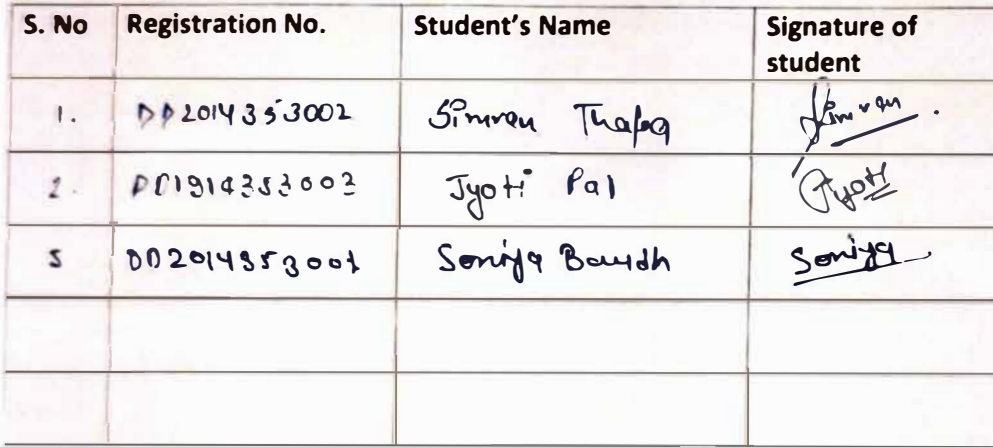 S. No Registration No. Student's Name Signature of student
1. DD2014353002 Simran Thapa Simran.
2. DD1914353003 Jyoti Pal Jyoti
3 DD2014353001 Soniya Baudh Soniya